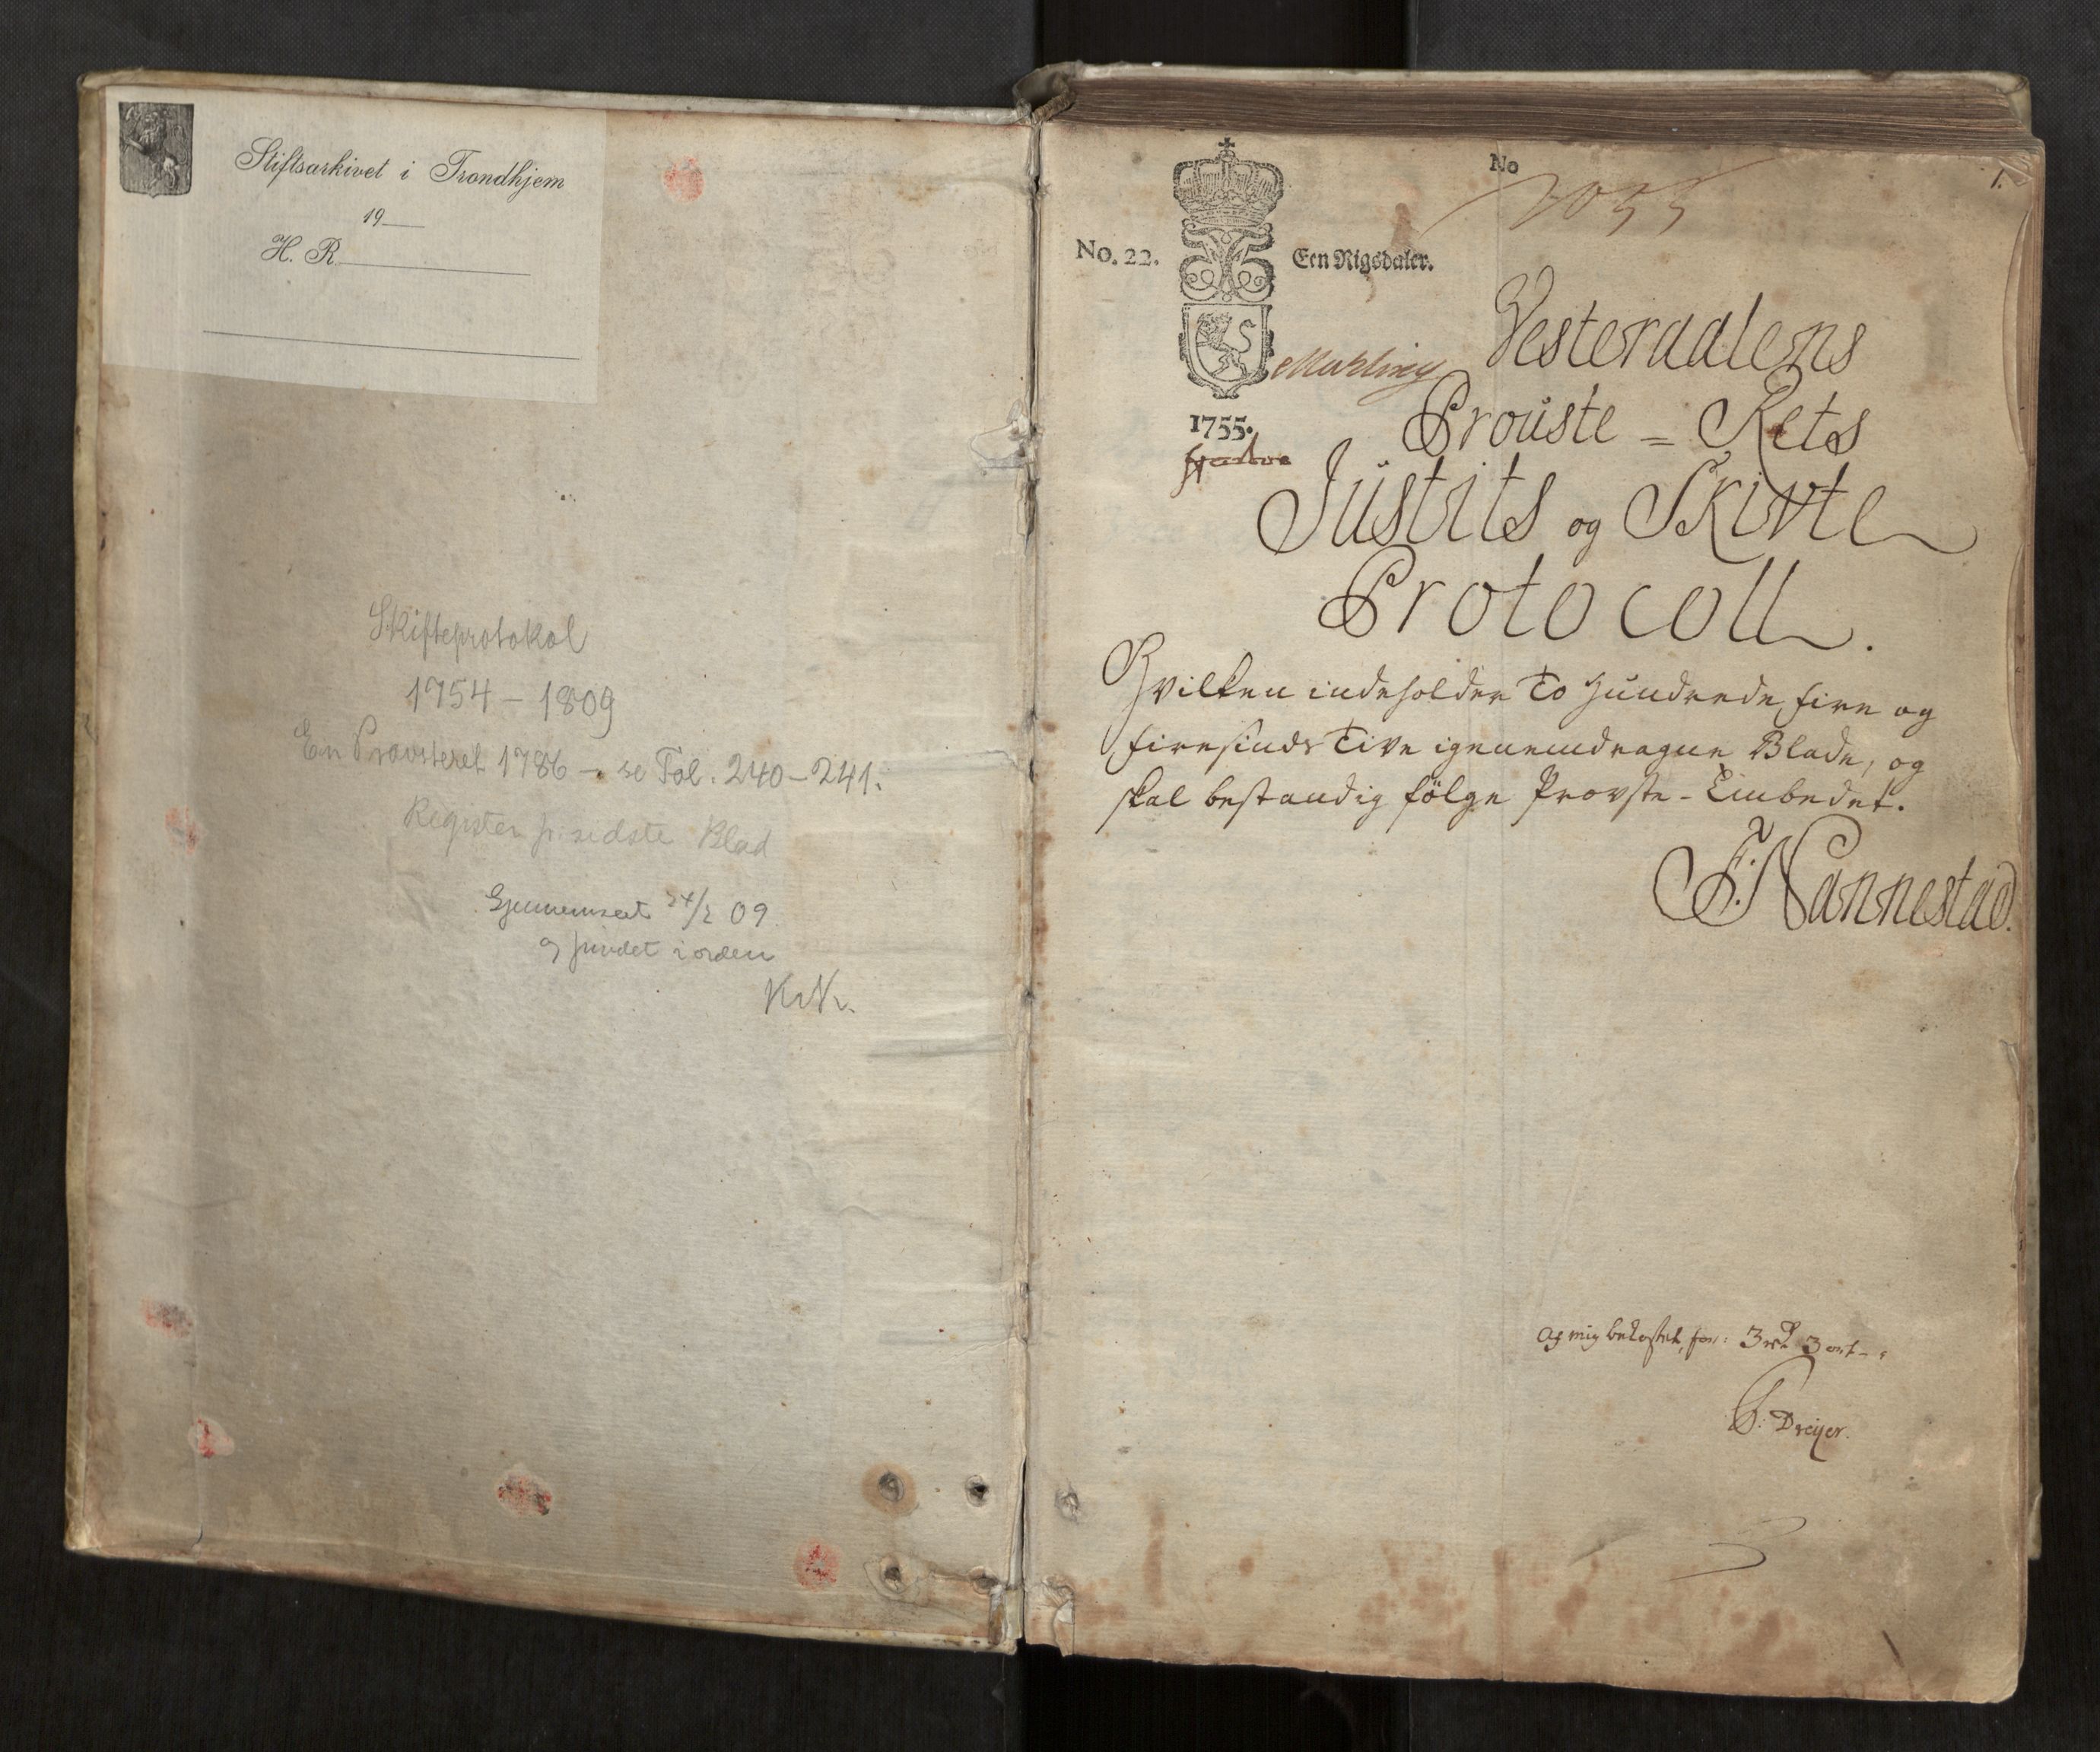 Stiftsarkivet i Trondhjem
19
H. R.
Skifteprotokol
1754 – 1809
En Provsteret 1786 – se Fol. 240–241.
Register på sidste Blad
Gjennemseet 24/2 09
og fundet i orden
No
2055
1.
No. 22.
Een Rigsdaler.
1755.
Vesteraalens
Prouste = Rets
Justits og Skivte
Protocoll.
Hvilken indeholder To Hundrede, fire og
firesinds Tive igienemdragne Blade, og
skal bestandig følge Provste-Embedet.
F: Nannestad.
Af mig bekostet, for: 3 rd 3 ort
Dreyer.